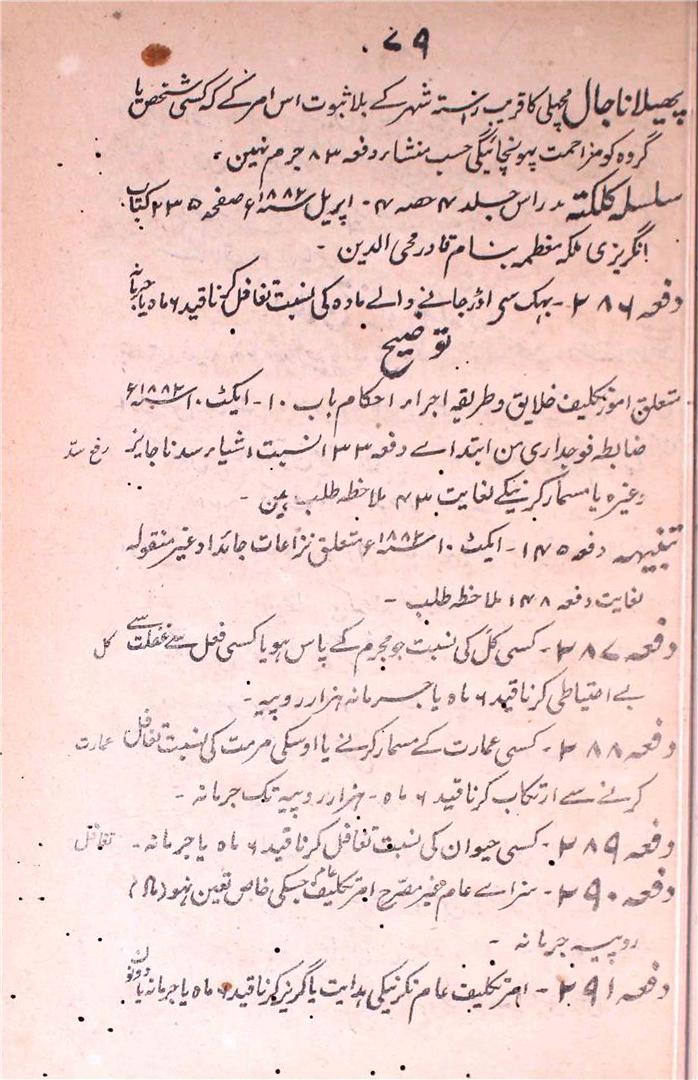 ۷۹
پھیلانا جال مچھلی کا قریب راستہ شہر کے بلا ثبوت اس امر کے کہ کسی شخص یا
گروہ کو مزاحمت پہونچائیگی حسب منشاء دفعہ ۸۳ جرم نہین ۔
سلسلہ کلکتہ مدراس جلد ۴ حصہ ۴ - اپریل ۱۸۸۲ء صفحہ ۲۳۵ کتاب
انگریزی ملکہ معظمہ بنام قادر محی الدین -
دفعہ ۲۸۶ - بہک سی اوڑ جانے والے مادہ کی نسبت تغافل کرنا قید ۶ ماہ یا جرمانہ
توضیح
متعلق امور تکلیف خلایق و طریقہ اجراء احکام باب ۱۰ - ایکٹ ۱۰ ۱۸۸۲ء
ضابطہ فوجداری من ابتداے دفعہ ۱۳۳ نسبت اشیاء سد ناجایز رفع سد
وغیرہ یا مسمار کرنیکے لغایت ۴۳ ملاحظہ طلب ہین -
تنبیہہ دفعہ ۱۴۵ - ایکٹ ۱۰ ۱۸۸۲ء متعلق نزاعات جائداد غیر منقولہ
لغایت دفعہ ۱۴۸ ملاحظہ طلب -
دفعہ ۲۸۷ - کسی کل کی نسبت جو مجرم کے پاس ہو یا کسی فعل سے غفلت سے کل
بے احتیاطی کرنا قید ۶ ماہ یا جرمانہ ہزار روپیہ -
دفعہ ۲۸۸ - کسی عمارت کے مسمار کرنے یا اوسکی مرمت کی نسبت تغافل عمارت
کرنے سے ارتکاب کرنا قید ۶ ماہ - ہزار روپیہ تک جرمانہ -
دفعہ ۲۸۹ - کسی حیوان کی نسبت تغافل کرنا قید ۶ ماہ یا جرمانہ - تغافل
دفعہ ۲۹۰ - سزاے عام غیر مصرح امر تکلیف عام جسکی خاص تعین نہو
روپیہ جرمانہ -
دفعہ ۲۹۱ - امر تکلیف عام نکرنیکی ہدایت یا گریز کرنا قید ۶ ماہ یا جرمانہ یا دونون